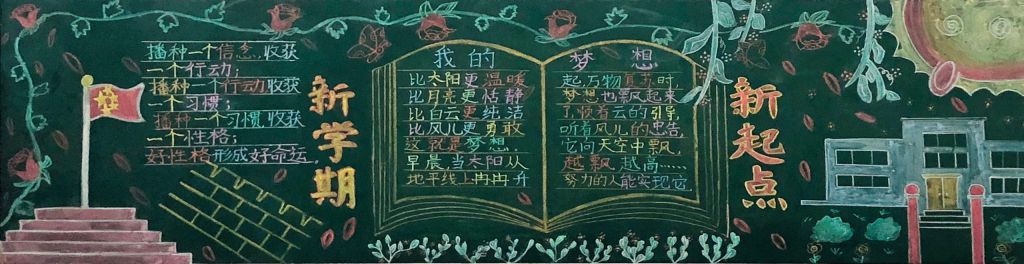 播种一个信念,收获
一个行动;
播种一个行动收获
一个习惯;
播种一个习惯,收获
一个性格;
好性格形成好命运。
新学期
我的
比太阳更温暖
比月亮更恬静
比白云更纯洁
比风儿更勇敢
这就是梦想.
早晨,当太阳从
地平线上冉冉升
梦想
起万物复苏时,
梦想也飘起来
了彼着云的引导,
听着风儿的忠告,
它向天空中飘,
越飘越高……
努力的人能实现它
新起点